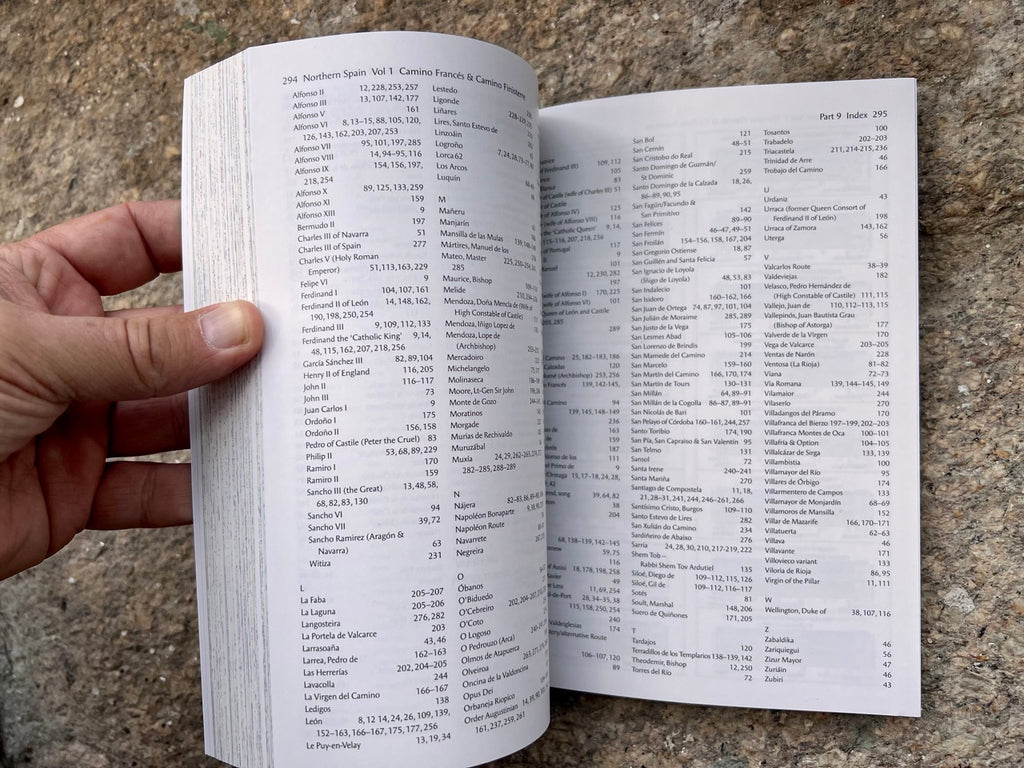 294 Northern Spain Vol 1 Camino Francés & Camino Finisterre
Alfonso II 12, 228, 253, 257
Alfonso III 13, 107, 142, 177
Alfonso V 161
Alfonso VI 8, 13–15, 88, 105, 120,
126, 143, 162, 203, 207, 253
Alfonso VII 95, 101, 197, 285
Alfonso VIII 14, 94–95, 116
Alfonso IX 154, 156, 197,
218, 254
Alfonso X 89, 125, 133, 259
Alfonso XI 159
Alfonso XIII 9
Bermudo II 197
Charles III of Navarra 51
Charles III of Spain 277
Charles V (Holy Roman
Emperor) 51, 113, 163, 229
Felipe VI 9
Ferdinand I 104, 107, 161
Ferdinand II of León 14, 148, 162,
190, 198, 250, 254
Ferdinand III 9, 109, 112, 133
Ferdinand the 'Catholic King' 9, 14,
48, 115, 162, 207, 218, 256
García Sánchez III 82, 89, 104
Henry II of England 116, 205
John II 116–117
John III 73
Juan Carlos I 9
Ordoño I 175
Ordoño II 156, 158
Pedro of Castile (Peter the Cruel) 83
Philip II 53, 68, 89, 229
Ramiro I 170
Ramiro II 159
Sancho III (the Great) 13, 48, 58,
68, 82, 83, 130
Sancho VI 94
Sancho VII 39, 72
Sancho Ramirez (Aragón &
Navarra) 63
Witiza 231
L
La Faba 205–207
La Laguna 205–206
Langosteira 276, 282
La Portela de Valcarce 203
Larrasoaña 43, 46
Larrea, Pedro de 162–163
Las Herrerías 202, 204–205
Lavacolla 244
La Virgen del Camino 166–167
Ledigos 138
León 8, 12 14, 24, 26, 109, 139,
152–163, 166–167, 175, 177, 256
Le Puy-en-Velay 13, 19, 34
Lestedo
Ligonde
Liñares
Lires, Santo Estevo de
Linzoáin
Logroño
Lorca 62
Los Arcos
Luquín
M
Mañeru
Manjarín
Mansilla de las Mulas
Mártires, Manuel de los
Mateo, Master
285
Maurice, Bishop
Melide
Mendoza, Doña Mencía de (Wife of
High Constable of Castile)
Mendoza, Iñigo Lopez de
Mendoza, Lope de
(Archbishop)
Mercadoiro
Michelangelo
Molinaseca
Moore, Lt-Gen Sir John
Monte de Gozo
Moratinos
Morgade
Murias de Rechivaldo
Muruzábal
Muxía
282–285, 288–289
N
Nájera
Napoléon Bonaparte
Napoléon Route
Navarrete
Negreira
O
Óbanos
O'Biduedo
O'Cebreiro
O'Coto
O Logoso
O Pedrouzo (Arca)
Olmos de Atapuerca
Olveiroa
Oncina de la Valdoncina
Opus Dei
Orbaneja Riopico
Order Augustinian
161, 237, 259, 261
Part 9 Index 295
109, 112
105
83
(wife of Charles III) 51
of Castile
of Alfonso IV) 125
(wife of Alfonso VIII) 116
the 'Catholic Queen' 9, 14,
207, 218, 256
of Portugal 117
9
101
12, 230, 282
197
of Alfonso I) 170, 225
of Alfonso VI) 101
Queen of León and Castile
289
Camino 25, 182–183, 186
120
(Archbishop) 253, 256
139, 142–145,
94
139, 145, 148–149
236
163
159
187
111
9
15, 17–18, 24, 28,
39, 64, 82
38
204
68, 138–139, 142–145
59, 75
116
18, 178, 198, 258
49
11, 69, 254
28, 34–35, 38
115, 158, 250, 254
240
Valdeiglesias 174
/alternative Route
106–107, 120
89
San Bol 121
San Cernín 48–51
San Cristobo do Real 215
Santo Domingo de Guzmán/
St Dominic 259
Santo Domingo de la Calzada 18, 26,
86–89, 90, 95
San Fagún/Facundo &
San Primitivo 142
San Felices 89–90
San Fermín 46–47, 49–51
San Froilán 154–156, 158, 167, 204
San Gregorio Ostiense 18, 87
San Guillén and Santa Felicia 57
San Ignacio de Loyola
(Iñigo de Loyola) 48, 53, 83
San Indalecio 101
San Isidoro 160–162, 166
San Juan de Ortega 74, 87, 97, 101, 104
San Julián de Moraime 285, 289
San Justo de la Vega 175
San Lesmes Abad 105–106
San Lorenzo de Brindis 199
San Mamede del Camino 214
San Marcelo 159–160
San Martín del Camino 166, 170, 174
San Martín de Tours 130–131
San Millán 64, 89–91
San Millán de la Cogolla 86–87, 89–91
San Nicolás de Bari 101
San Pelayo of Córdoba 160–161, 244, 257
Santo Toribio 174, 190
San Pía, San Capraiso & San Valentín 95
San Telmo 131
Sansol 72
Santa Irene 240–241
Santa Mariña 270
Santiago de Compostela 11, 18,
21, 28–31, 241, 244, 246–261, 266
Santísimo Cristo, Burgos 109–110
Santo Estevo de Lires 282
San Xulián do Camino 234
Sardiñeiro de Abaixo 276
Sarria 24, 28, 30, 210, 217–219, 222
Shem Tob –
Rabbi Shem Tov Ardutiel 135
Siloé, Diego de 109–112, 115, 126
Siloé, Gil de 109–112, 116–117
Sotés 81
Soult, Marshal 148, 206
Suero de Quiñones 171, 205
T
Tardajos 120
Terradillos de los Templarios 138–139, 142
Theodemir, Bishop 12, 250
Torres del Río 72
Tosantos 100
Trabadelo 202–203
Triacastela 211, 214–215, 236
Trinidad de Arre 46
Trobajo del Camino 166
U
Urdaniz 43
Urraca (former Queen Consort of
Ferdinand II of León) 198
Urraca of Zamora 143, 162
Uterga 56
V
Valcarlos Route 38–39
Valdeviejas 182
Velasco, Pedro Hernández de
(High Constable of Castile) 111, 115
Vallejo, Juan de 110, 112–113, 115
Vallepinós, Juan Bautista Grau
(Bishop of Astorga) 177
Valverde de la Virgen 170
Vega de Valcarce 203–205
Ventas de Narón 228
Ventosa (La Rioja) 81–82
Viana 72–73
Via Romana 139, 144–145, 149
Vilamaior 244
Vilaserío 270
Villadangos del Páramo 170
Villafranca del Bierzo 197–199, 202–203
Villafranca Montes de Oca 100–101
Villafría & Option 104–105
Villalcázar de Sirga 133, 139
Villambistia 100
Villamayor del Río 95
Villares de Órbigo 174
Villarmentero de Campos 133
Villamayor de Monjardín 68–69
Villamoros de Mansilla 152
Villar de Mazarife 166, 170–171
Villatuerta 62–63
Villava 46
Villavante 171
Villovieco variant 133
Viloria de Rioja 86, 95
Virgen of the Pillar 11, 111
W
Wellington, Duke of 38, 107, 116
Z
Zabaldika 46
Zariquiegui 56
Zizur Mayor 47
Zuriáin 46
Zubiri 43